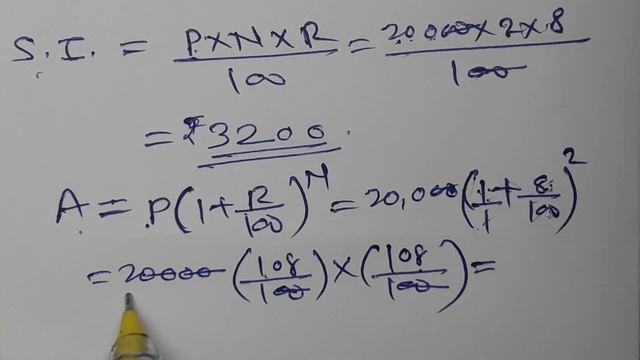 S.I. = P×N×R/100 = 20000×2×8/100
= ₹3200.
A = P(1+R/100)^N = 20,000(1/1+8/100)^2
= 20000(108/100)×(108/100)=